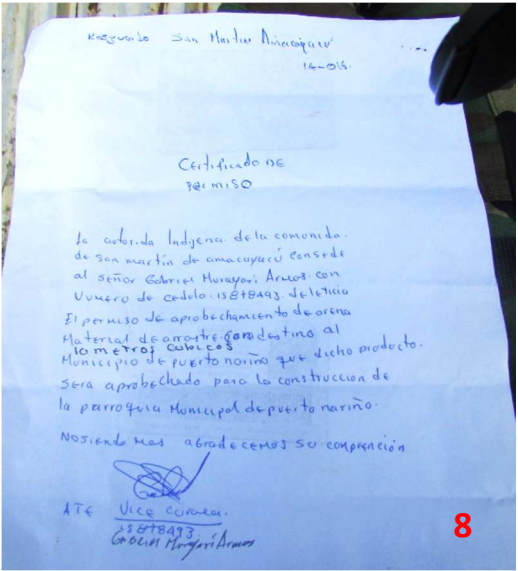 Resguardo San Martin Amacayacú
14-016.
Certificado DE
PERMISO
La autorida Indijena. dela comunida.
de San martin de amacayacú consede
al señor Gabriel Murayari Armas. con
Numero de cedula. 15878493. deleticia
El permiso de aprobechamiento de arena
Material de arrastre. con destino al
10 metros cubicos
Municipio de puerto nariño que dicho producto.
sera aprobechado para la construccion de
la parroquia Municipal de puerto nariño.
NO Siendo Mas agradecemos su comprención
ATE Vice curaca.
15878493
Gabriel Murayari Armas
8